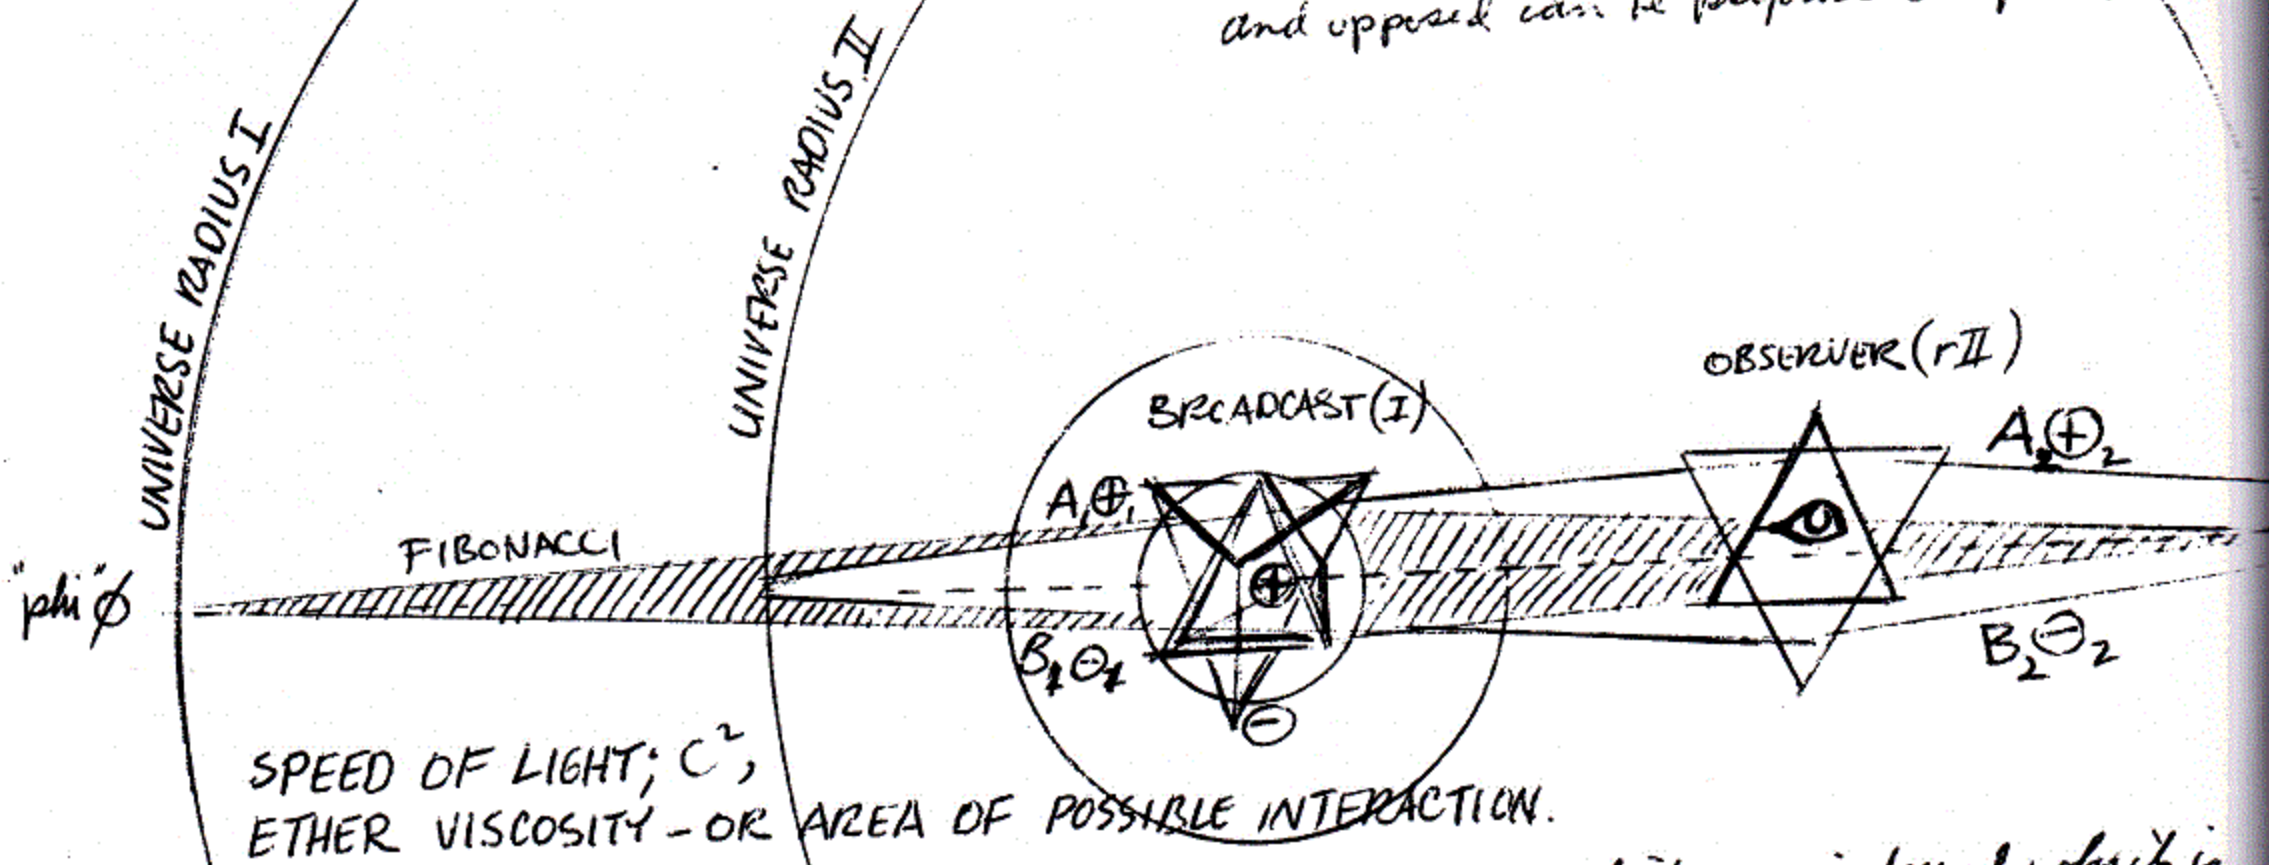 and opposed can be
UNIVERSE RADIUS I
UNIVERSE RADIUS II
OBSERVER (rII)
BROADCAST (I)
A₂⊕₂
A₁⊕₁
FIBONACCI
"phi" φ
⊕
B₁⊖₁
B₂⊖₂
⊖
SPEED OF LIGHT; C²,
ETHER VISCOSITY - OR AREA OF POSSIBLE INTERACTION.